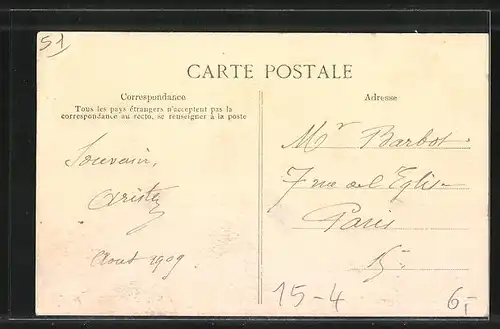 51
CARTE POSTALE
Correspondance
Tous les pays étrangers n'acceptent pas la
correspondance au recto, se renseigner à la poste
Adresse
Souvenir,
Août 1909
Mr Barbot
7 rue de l'Eglise
Paris
15-4
6,-